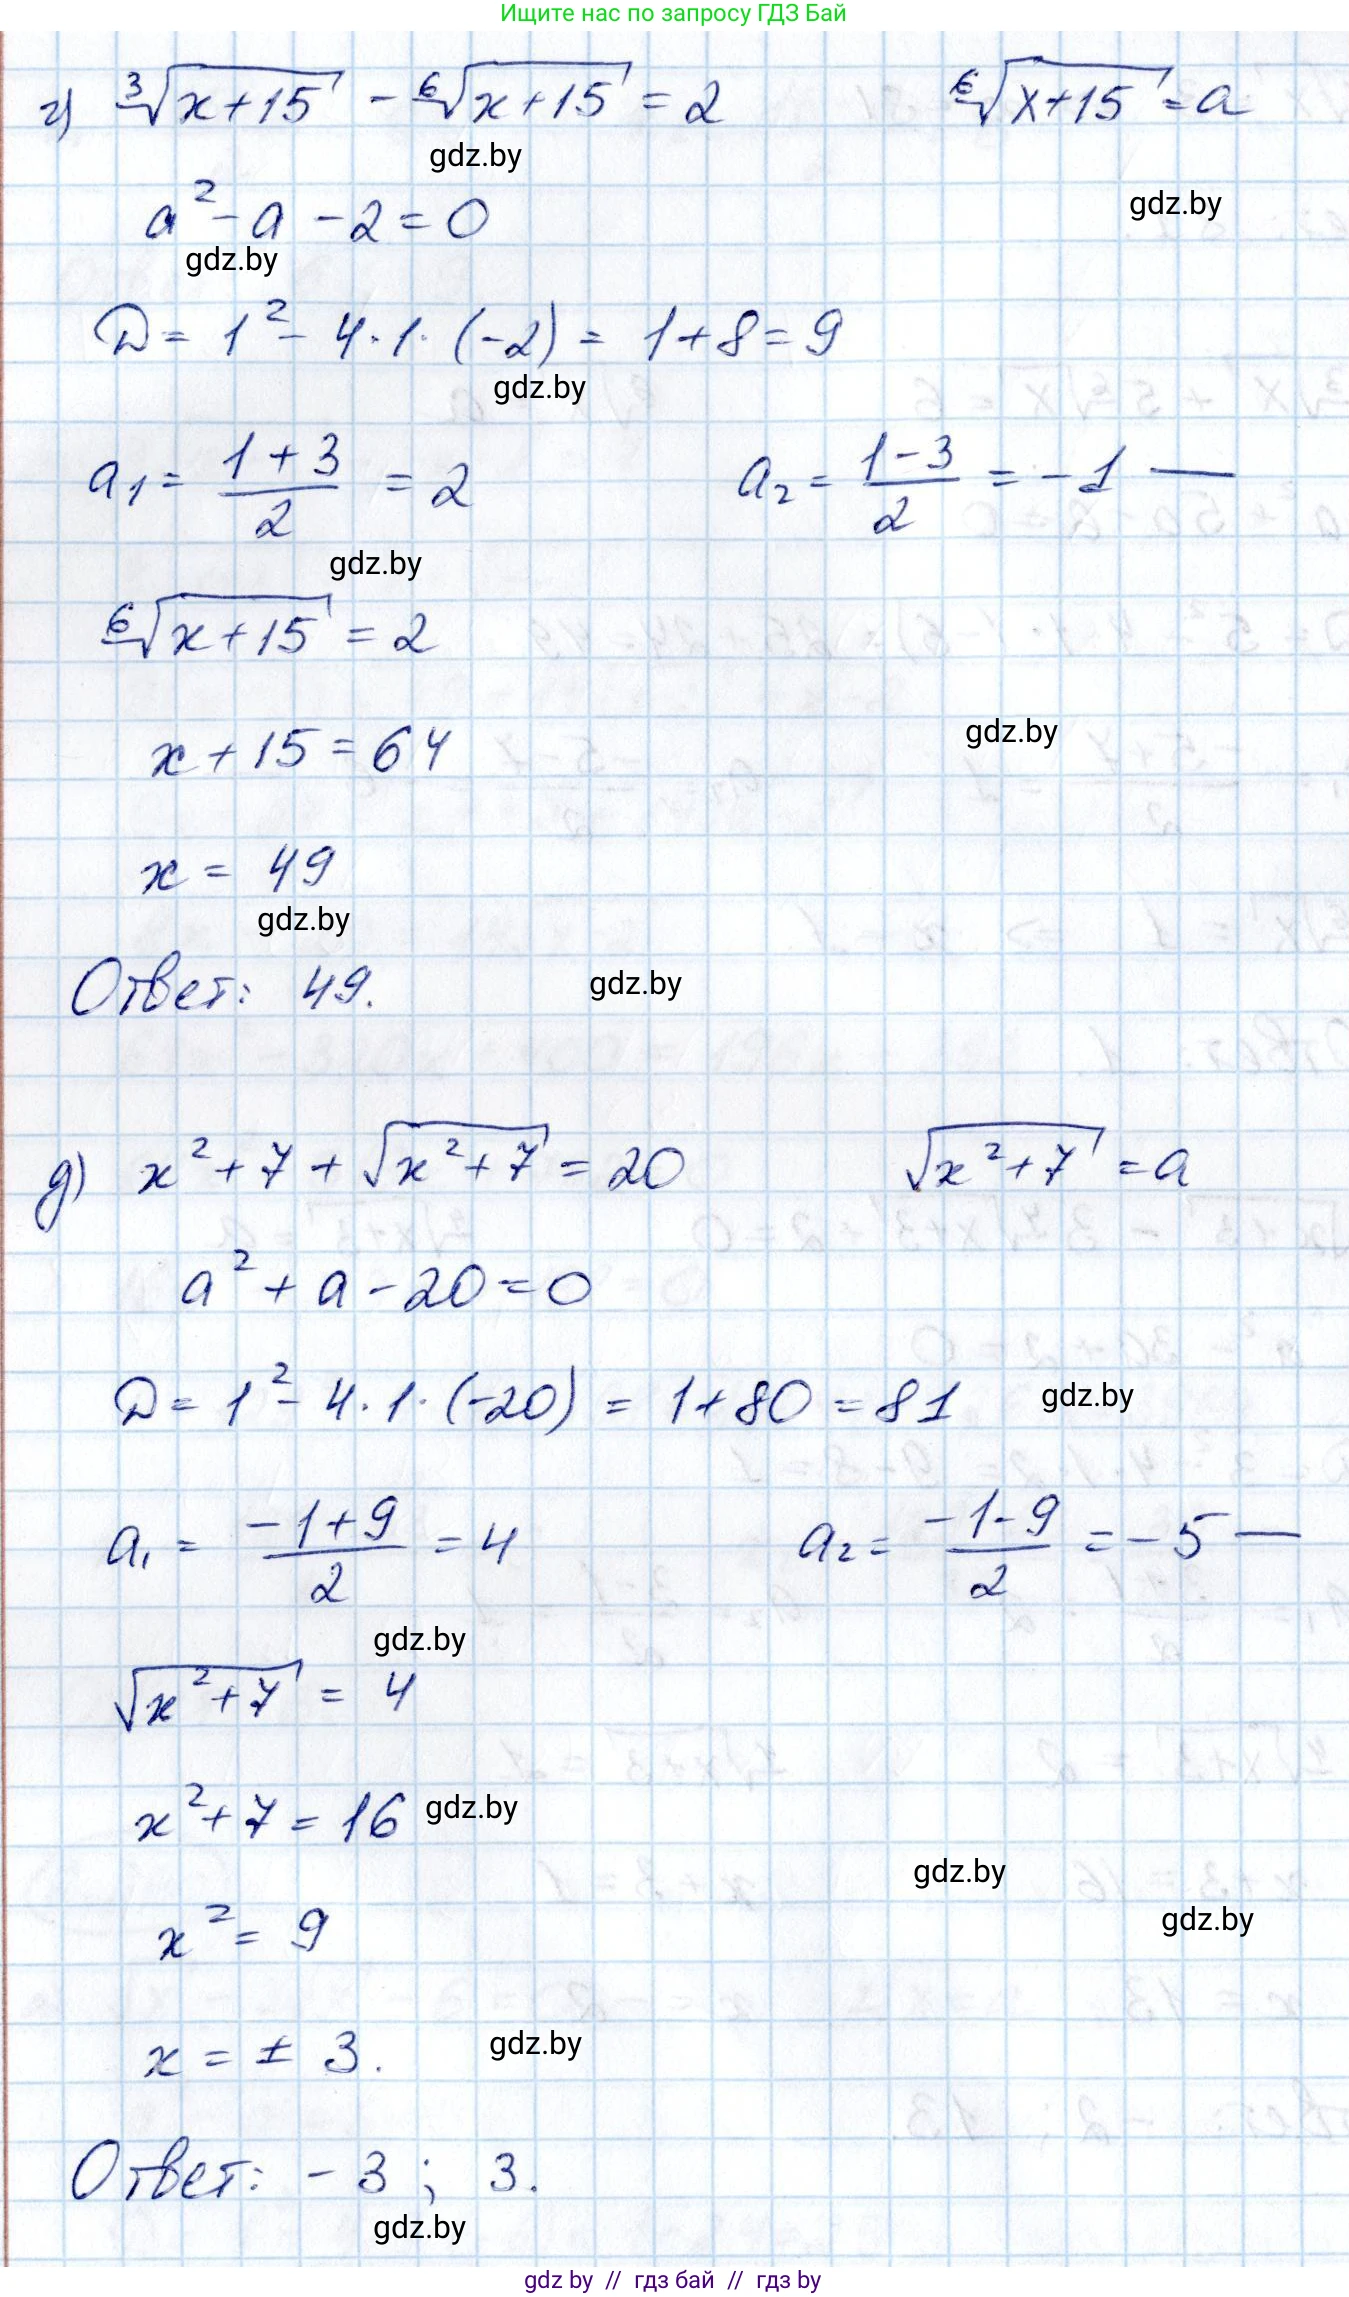 Ищите нас по запросу ГДЗ Бай
г) ∛(x+15) - ⁶√(x+15) = 2    ⁶√(x+15) = a
gdz.by
gdz.by
a² - a - 2 = 0
gdz.by
D = 1² - 4·1·(-2) = 1+8 = 9
gdz.by
a₁ = (1+3)/2 = 2    a₂ = (1-3)/2 = -1 —
gdz.by
⁶√(x+15) = 2
x + 15 = 64
gdz.by
x = 49
gdz.by
Ответ: 49.
gdz.by
д) x² + 7 + √(x²+7) = 20    √(x²+7) = a
a² + a - 20 = 0
D = 1² - 4·1·(-20) = 1+80 = 81
gdz.by
a₁ = (-1+9)/2 = 4    a₂ = (-1-9)/2 = -5 —
gdz.by
√(x²+7) = 4
x² + 7 = 16
gdz.by
gdz.by
gdz.by
x² = 9
x = ± 3.
gdz.by
Ответ: -3; 3.
gdz.by
gdz by // гдз бай // гдз by